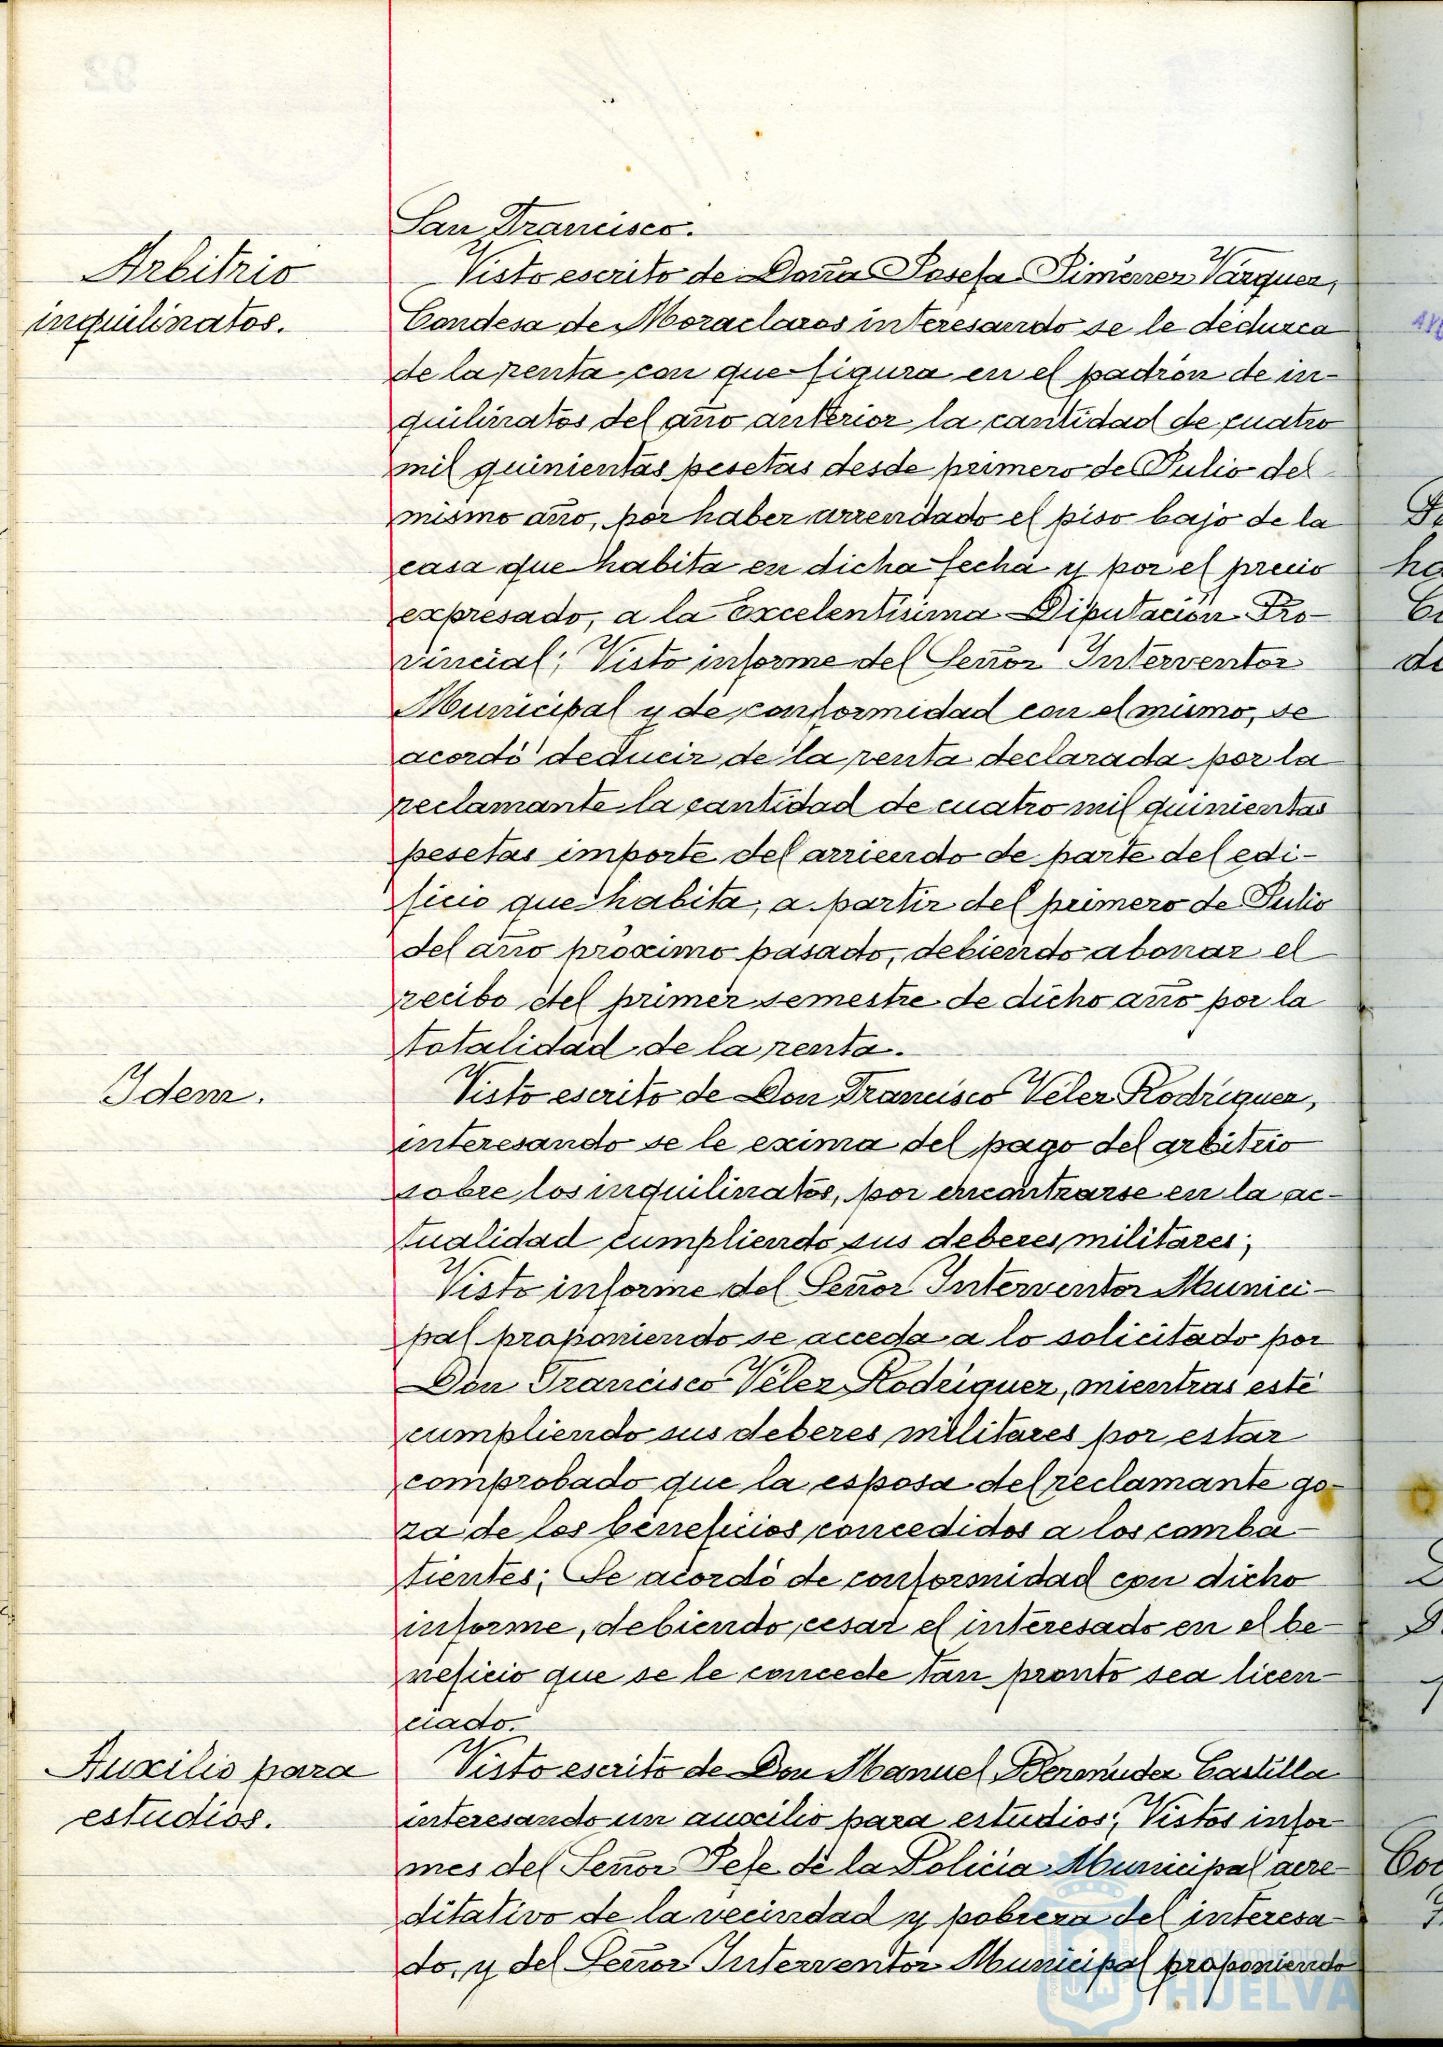 San Francisco.
Arbitrio
inquilinatos.
Visto escrito de Doña Josefa Jiménez Vázquez,
Condesa de Moraclaros interesando se le deduzca
de la renta con que figura en el padrón de in-
quilinatos del año anterior la cantidad de cuatro
mil quinientas pesetas desde primero de Julio del
mismo año, por haber arrendado el piso bajo de la
casa que habita en dicha fecha y por el precio
expresado, a la Excelentísima Diputación Pro-
vincial; Visto informe del Señor Interventor
Municipal y de conformidad con el mismo, se
acordó deducir de la renta declarada por la
reclamante la cantidad de cuatro mil quinientas
pesetas importe del arriendo de parte del edi-
ficio que habita, a partir del primero de Julio
del año próximo pasado, debiendo abonar el
recibo del primer semestre de dicho año por la
totalidad de la renta.
Idem.
Visto escrito de Don Francisco Vélez Rodríguez,
interesando se le exima del pago del arbitrio
sobre los inquilinatos, por encontrarse en la ac-
tualidad cumpliendo sus deberes militares;
Visto informe del Señor Interventor Munici-
pal proponiendo se acceda a lo solicitado por
Don Francisco Vélez Rodríguez, mientras esté
cumpliendo sus deberes militares por estar
comprobado que la esposa del reclamante go-
za de los beneficios concedidos a los comba-
tientes; Se acordó de conformidad con dicho
informe, debiendo cesar el interesado en el be-
neficio que se le concede tan pronto sea licen-
ciado.
Auxilio para
estudios.
Visto escrito de Don Manuel Bermúdez Castilla
interesando un auxilio para estudios; Vistos infor-
mes del Señor Jefe de la Policía Municipal acre-
ditativo de la vecindad y pobreza del interesa-
do, y del Señor Interventor Municipal proponiendo
Ayuntamiento de
HUELVA